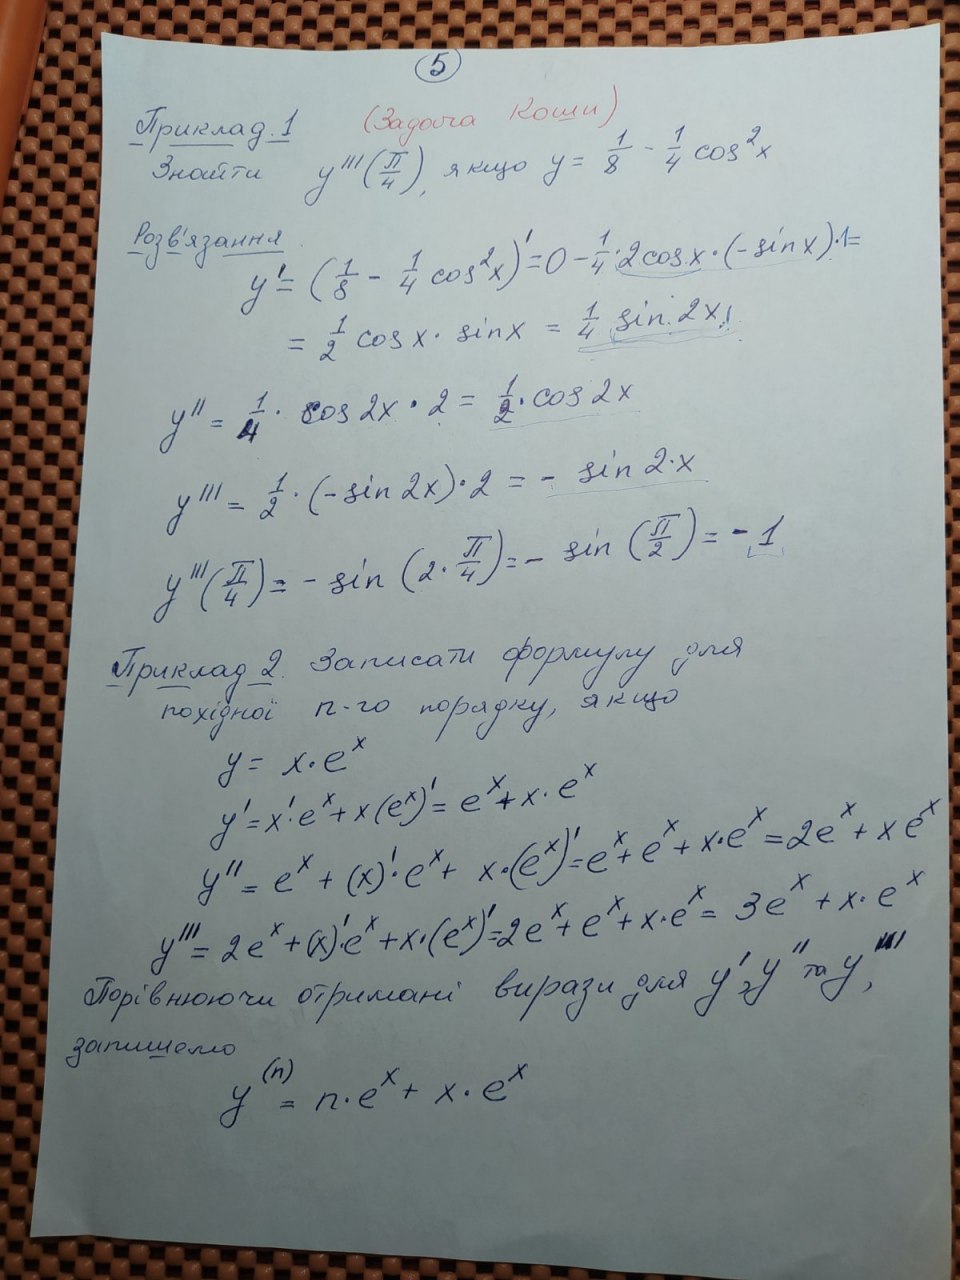 5
Приклад 1 (Задача Коши)
Знайти y'''(π/4), якщо y = 1/8 - 1/4 cos²x
Розв'язання
y' = (1/8 - 1/4 cos²x)' = 0 - 1/4 · 2cos x · (-sin x) · 1 =
= 1/2 cos x · sin x = 1/4 sin 2x;
y'' = 1/4 · cos 2x · 2 = 1/2 · cos 2x
y''' = 1/2 · (-sin 2x) · 2 = - sin 2·x
y'''(π/4) = - sin (2 · π/4) = - sin (π/2) = - 1
Приклад 2. Записати формулу для
похідної n-го порядку, якщо
y = x · eˣ
y' = x' · eˣ + x (eˣ)' = eˣ + x · eˣ
y'' = eˣ + (x)' · eˣ + x · (eˣ)' = eˣ + eˣ + x · eˣ = 2eˣ + x eˣ
y''' = 2eˣ + (x)' · eˣ + x · (eˣ)' = 2eˣ + eˣ + x · eˣ = 3eˣ + x · eˣ
Порівнюючи отримані вирази для y', y'' та y''',
запишемо
y⁽ⁿ⁾ = n · eˣ + x · eˣ